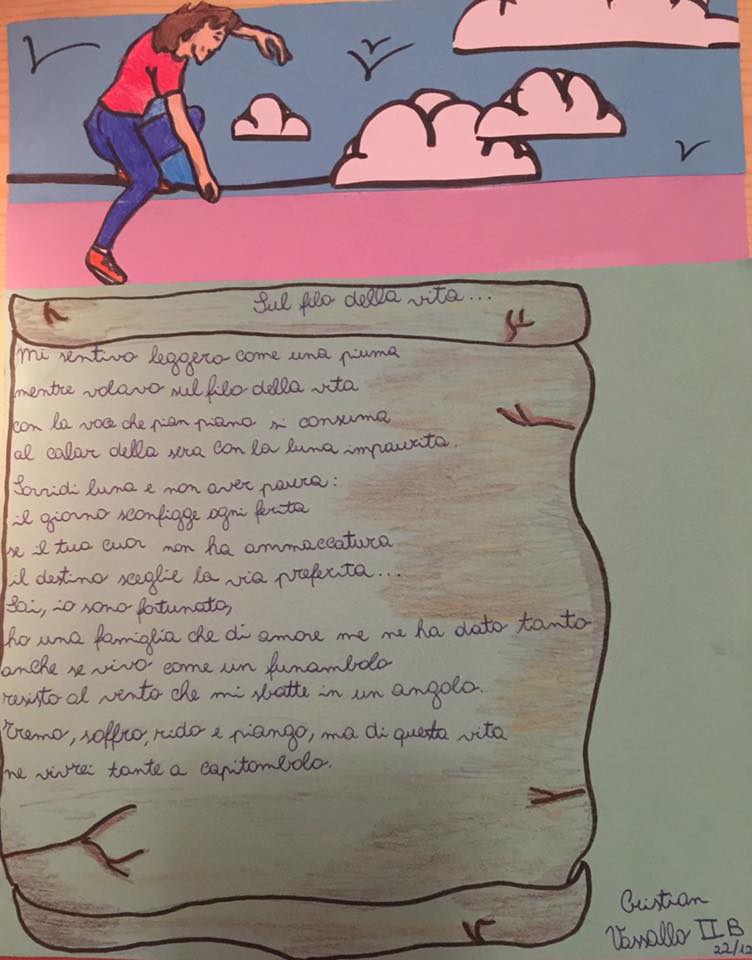 Sul filo della vita...
Mi sentivo leggero come una piuma
mentre volavo sul filo della vita
con la voce che pian piano si consuma
al calar della sera con la luna impaurita.
Sorridi luna e non aver paura:
il giorno sconfigge ogni ferita
se il tuo cuor non ha ammaccatura
il destino sceglie la via preferita...
Sai, io sono fortunato,
ho una famiglia che di amore me ne ha dato tanto
anche se vivo come un funambolo
resisto al vento che mi sbatte in un angolo.
Tremo, soffro, rido e piango, ma di questa vita
ne vivrei tante a capitombolo.
Cristian
Vassallo II B
22/12